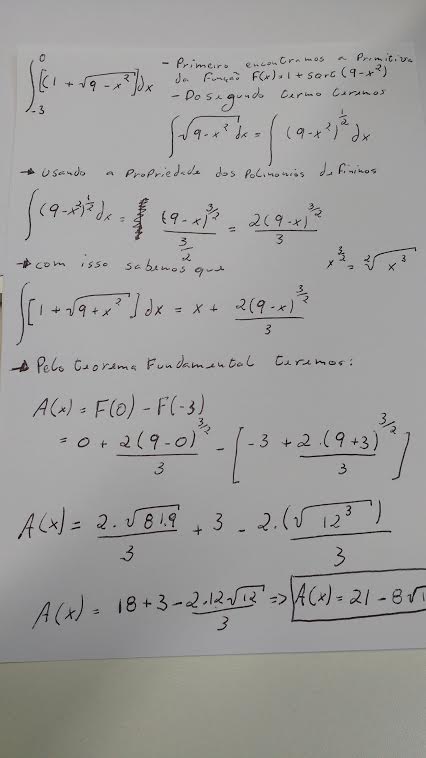 ∫₋₃⁰ [(1 + √(9 - x²)] dx
- Primeiro encontramos a Primitiva
da Função F(x)=1 + sqrt(9-x²)
- Do segundo termo teremos
∫ √(9-x²) dx = ∫ (9-x²)^(1/2) dx
→ Usando a Propriedade dos Polinomios definimos
∫ (9-x²)^(1/2) dx = (9-x)^(3/2) / (3/2) = 2(9-x)^(3/2) / 3
→ com isso sabemos que
x^(3/2) = ²√(x³)
∫ [1 + √(9 + x²)] dx = x + 2(9-x)^(3/2) / 3
→ Pelo teorema Fundamental teremos:
A(x) = F(0) - F(-3)
= 0 + 2(9-0)^(3/2) / 3 - [-3 + 2.(9+3)^(3/2) / 3]
A(x) = 2.√(81.9) / 3 + 3 - 2.(√(12³)) / 3
A(x) = 18 + 3 - 2.12√12 / 3 => A(x) = 21 - 8√1